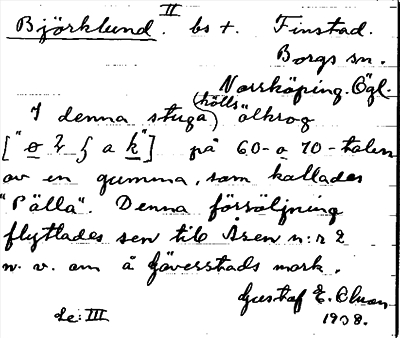 Björklund. II bs +. Finstad.
Borgs sn.
Norrköping. Ögl.
I denna stuga (hölls) ölkrog
["   a k"] på 60- o 70-talen
av en gumma, som kallades
"Pälla". Denna försäljning
flyttades sen till Åsen n:r 2
n. v. om å Jäverstads mark.
Gustaf E.
Le: III 1938.